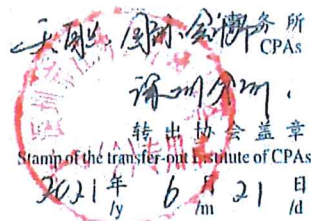 天职国际会计师务所
CPAs
深圳分所
转出协会盖章
Stamp of the transfer-out Institute of CPAs
2021年 6月 21日
/y /m /d